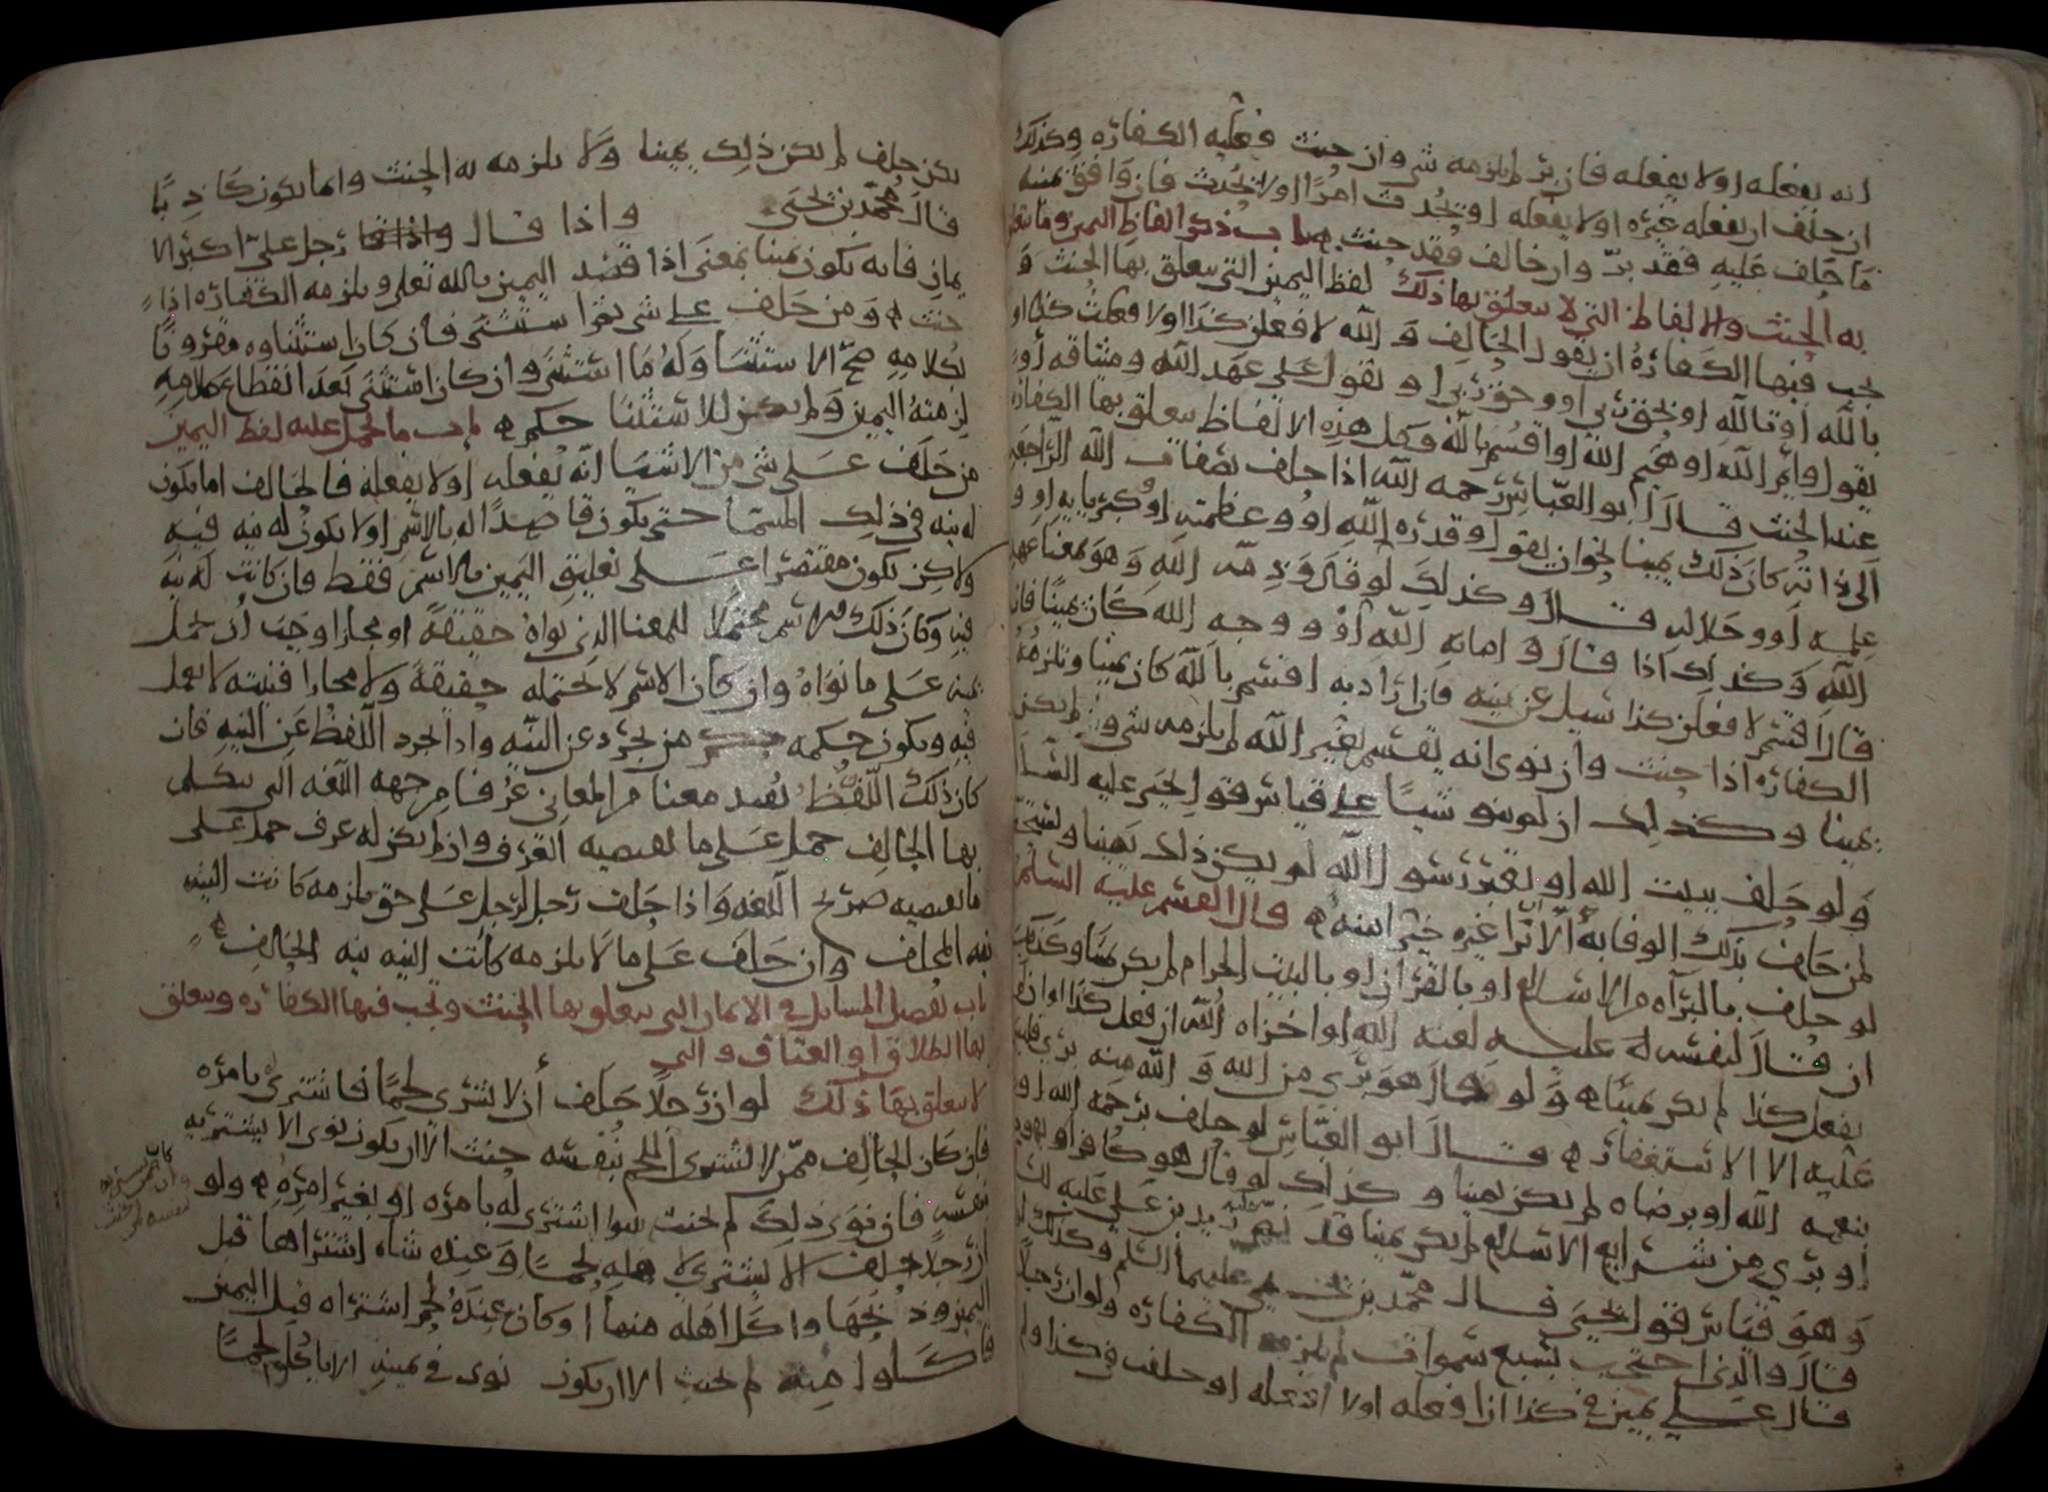 انه يفعله او لا يفعله فان بر لم يلزمه شي وان حنث فعليه الكفاره وكذلك
ان حلف ان يفعله غيره او لا يفعله او يحدث امرًا او لا يحدث فان وافق يمينه
ما حلف عليه فقد برّ وان خالف فقد حنث باب ذكر الفاظ اليمين وما يتعلق
به الحنث والالفاظ التي لا يتعلق بها ذلك لفظ اليمين التي يتعلق بها الحنث و
يجب فيها الكفارة ان يقول الحالف و الله لا فعلن كذا او لا فعلت كذا او
بالله او تالله او بحق ربي او وحق ربي او يقول على عهد الله وميثاقه او
يقول وايم الله او هيم الله او اقسم بالله وكل هذه الالفاظ يتعلق بها الكفاره
عند الحنث قال ابو العباس رحمه الله اذا حلف بصفات الله الراجعه
الى ذاته كان ذلك يمينا نحو ان يقول وقدره الله او وعظمته او كبريايه او و
علمه او وجلاله قال وكذلك لو قال وذمه الله وهو معنا عهد
الله وكذلك اذا قال و امانه الله او و وجه الله كان يمينًا فان
قال اقسم لا فعلن كذا سيل عن يمينه فان اراد به اقسم بالله كان يمينا وتلزمه
الكفاره اذا حنث وان نوى انه يقسم بغير الله لم يلزمه شي ولم يكن
يمينا وكذلك ان لم ينو شيا على قياس قول يحيى عليه السلم
ولو حلف ببيت الله او بقبر رسول الله لم يكن ذلك يمينا ويستحب
لمن حلف بذلك الوفا به الا ان يرا غيره خيرا منه قال القسم عليه السلم
لو حلف بالبرآه من الاسلام او بالقرآن او بالبيت الحرام لم يكن يمينا وكذلك
ان قال لنفسه عليه لعنه الله او اخزاه الله ان فعل كذا او ان لم
يفعل كذا لم يكن يمينا ولو قال هو بري من الله و الله منه بري فليس
عليه الا الاستغفار قال ابو العباس لو حلف برحمه الله او
بنعمه الله او برضاه لم يكن يمينا وكذلك لو قال هو كافر او يهودي
او بري من شرايع الاسلام لم يكن يمينا قد نص عليه زيد بن علي عليه السلم
وهو قياس قول يحيى قال محمد بن يحيى عليهما السلم وكذلك لو
قال والذي احتجب بسبع سموات لم يلزمه الكفاره ولو ان رجلًا
قال علي يمين في كذا ان افعله او لا افعله او حلفت في كذا ولم
يكن حلف لم يكن ذلك يمينا ولا يلزمه به الحنث وانما يكون كاذبًا
قال محمد بن يحيى واذا قال رجل علي اكبر الا
يمان فانه يكون يمينا بمعنى اذا قصد اليمين بالله تعلى ويلزمه الكفاره اذا
حنث ومن حلف على شي ثم استثنى فان كان استثناوه مقرونًا
بكلامه صح الاستثنا وله ما استثنى وان كان استثنى بعد انقطاع كلامه
لزمته اليمين ولم يكن للاستثنا حكم باب ما يحمل عليه لفظ اليمين
من حلف على شي من الاشيا انه يفعله او لا يفعله فالحالف اما يكون
له نيه في ذلك المسما حتى يكون قاصدًا له بالاسم او لا يكون له نيه فيه
ولا كن يكون مقتصرا على تعليق اليمين بالاسم فقط فان كانت له نيه
فيه وكان ذلك الاسم محتملا للمعنا الذي نواه حقيقةً او مجازا وجب ان يحمل
يمينه على ما نواه وان كان الاسم لا يحتمله حقيقةً ولا مجازا فنيته لا تعمل
فيه ويكون حكمه حكم من تجرد عن النيه واذا تجرد اللفظ عن النيه فان
كان ذلك اللفظ يفيد معنا من المعاني عرفا من جهه اللغه التي يتكلم
بها الحالف حمل على ما يقتضيه العرف وان لم يكن له عرف حمل على
ما يقتضيه صريح اللغه واذا حلف رجل لرجل على حق يلزمه كانت النيه
نيه المحلف وان حلف على ما لا يلزمه كانت النيه نيه الحالف
باب تفصيل المسايل في الايمان التي يتعلق بها الحنث وتجب فيها الكفاره ويتعلق
بها الطلاق او العتاق والتي
لا يتعلق بها ذلك لو ان رجلًا حلف أن لا يشتري لحمًا فاشترى له بامره
فان كان الحالف ممن لا يشتري اللحم بنفسه حنث الا ان يكون نوى الا يشتريه
بنفسه فان نوى ذلك لم يحنث سوا اشترى له بامره او بغير امره ولو
ان رجلا حلف الا يشتري لاهله لحمًا وعنده شاه اشتراها قبل
اليمين وذبحها واكل اهله منها او كان عنده لحم اشتراه قبل اليمين
فاكلوا منه لم يحنث الا ان يكون نوى في يمينه الا ياكلوا لحمًا